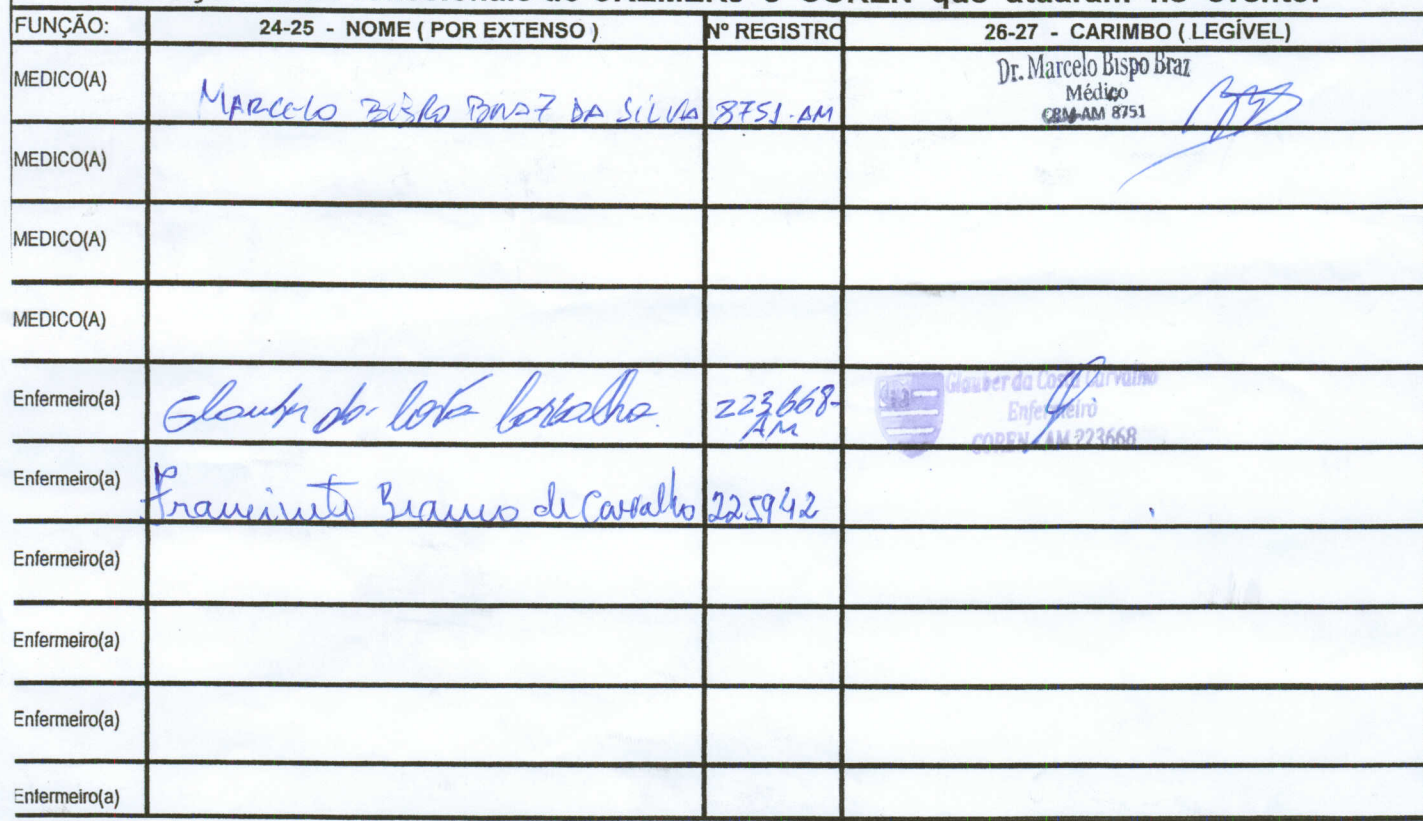 COREN que atuaram no evento:
FUNÇÃO: 24-25 - NOME ( POR EXTENSO ) Nº REGISTRO 26-27 - CARIMBO ( LEGÍVEL)
MEDICO(A) MARCELO BISPO BRAZ DA SILVA 8751-AM Dr. Marcelo Bispo Braz
Médico
CRM-AM 8751
MEDICO(A)
MEDICO(A)
MEDICO(A)
Enfermeiro(a) Glauber da Costa Carvalho. 223668-
AM
Glauber da Costa Carvalho
Enfermeiro
COREN AM 223668
Enfermeiro(a) Branco de Carvalho 225942
Enfermeiro(a)
Enfermeiro(a)
Enfermeiro(a)
Enfermeiro(a)